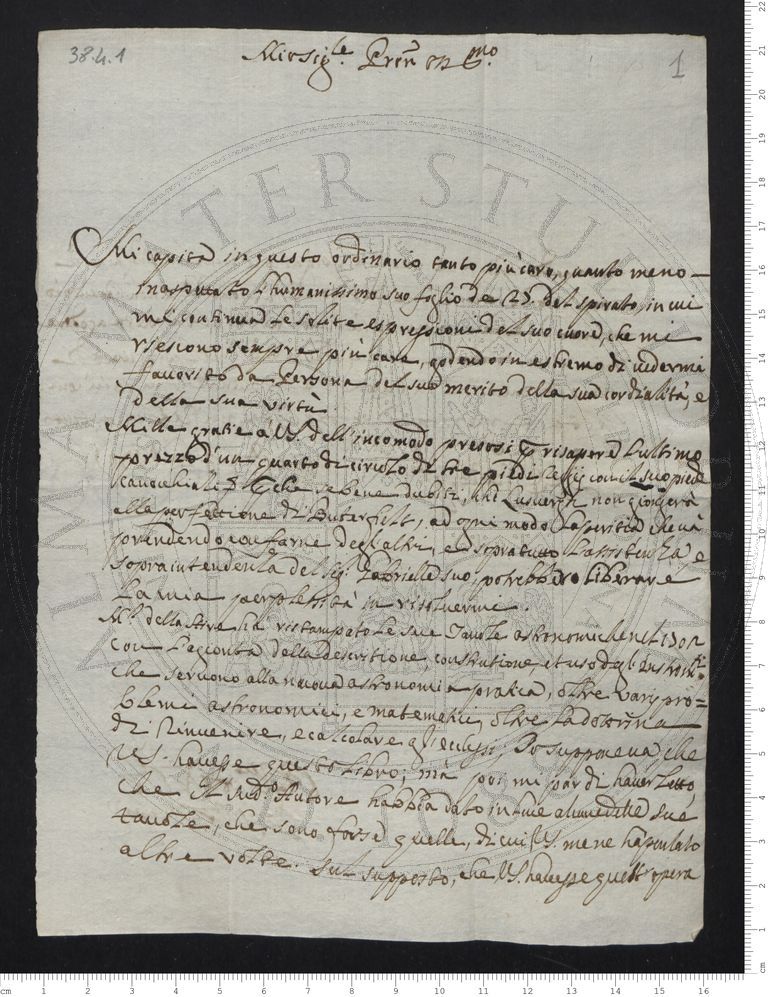 38.4.1
1
Mio Sig.re Pron
Mi capita in questo ordinario tanto più caro, quanto meno
inaspettato l'humanissimo suo foglio de 25. del spirato, in cui
mi continua le solite espressioni del suo cuore, che mi
riescono sempre più care, godendo in estremo di vedermi
favorito da Persona del suo merito della sua cordialità, e
della sua virtù.
Mille gratie à VS. dell'incomodo presosi p risapere l'ultimo
prezzo d'un quarto di circolo di tre piedi con il suo
che se bene dubiti, che non giongerà
alla perfettione di Buterfielt, ad ogni modo la peritia che và
prendendo con farne degl'altri, e sopra tutto l'assistenza, e
sopraintendenza del Sig. Gabrielle suo, potrebbero liberare
la mia perplessità in risolvermi.
M.r della Hire hà ristampato le sue Tavole astronomiche nel 1702
con l'aggionta della descritione, construtione, et uso degl'Instrom.ti
che servono alla nuova astronomia pratica, oltre varij pro=
blemi astronomici, e matematici, oltre la dottrina
di rinvenire, e calcolare gl'ecclissi; Io supponeva che
VS. havesse questo libro; mà poi mi par di haver letto
che il Med.o Autore habbia dato in luce alcune delle sue
tavole, che sono forse quelle, di cui VS. me ne hà parlato
altre volte. Sul supposto, che VS. havesse quest'opera